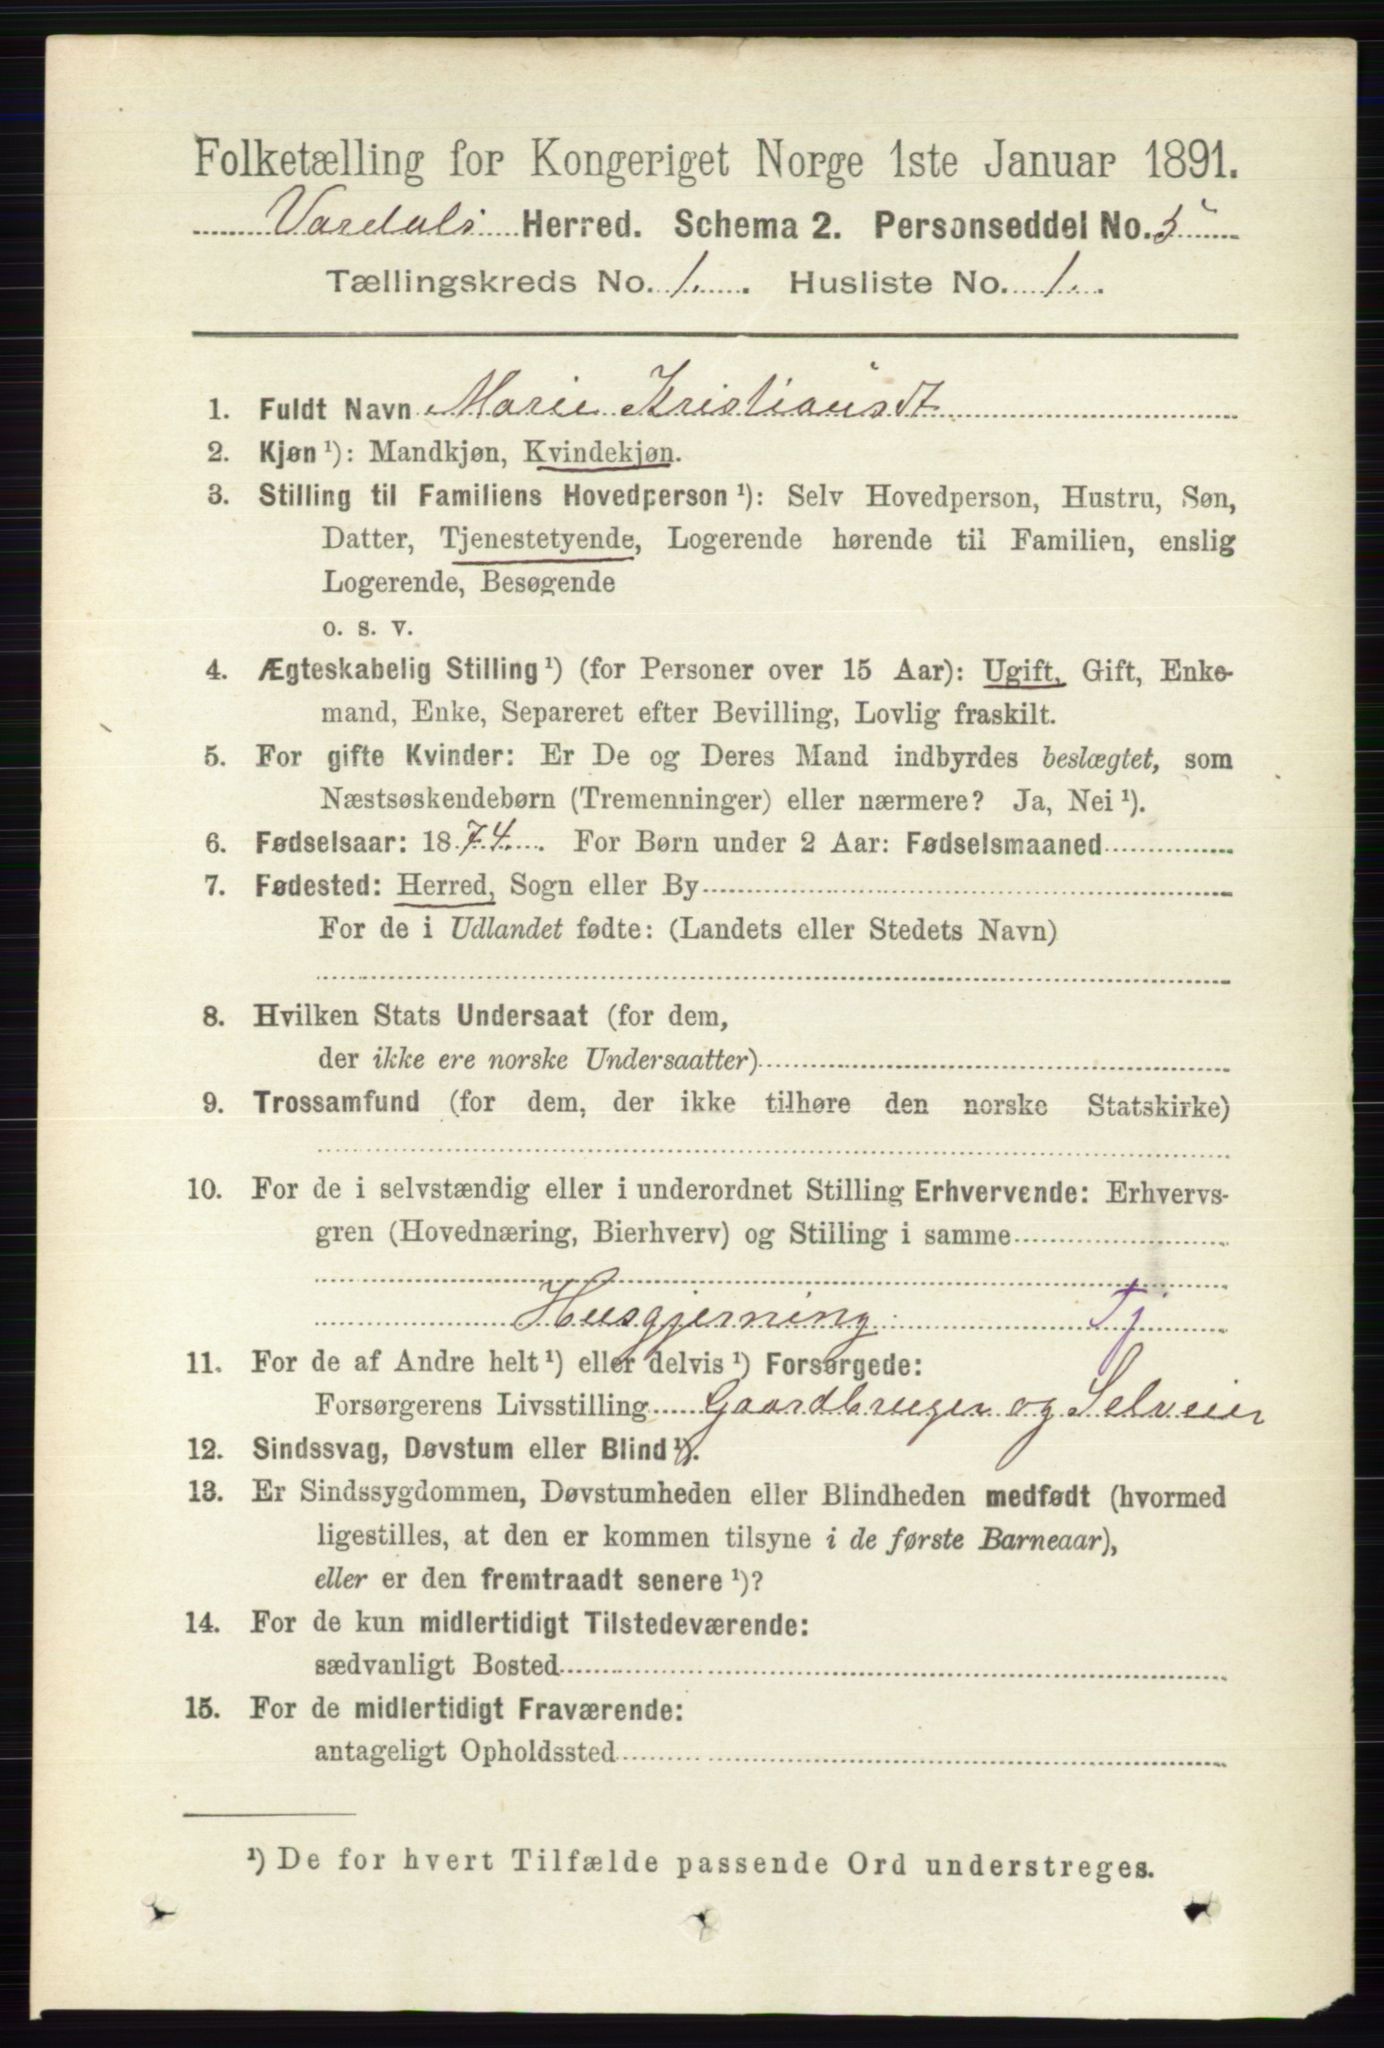 Folketælling for Kongeriget Norge 1ste Januar 1891.
Vardals Herred. Schema 2. Personseddel No. 5
Tællingskreds No. 1. Husliste No. 1.
1. Fuldt Navn Marie Kristiansdt
2. Kjøn ¹): Mandkjøn, Kvindekjøn.
3. Stilling til Familiens Hovedperson ¹): Selv Hovedperson, Hustru, Søn,
Datter, Tjenestetyende, Logerende hørende til Familien, enslig
Logerende, Besøgende
o. s. v.
4. Ægteskabelig Stilling ¹) (for Personer over 15 Aar): Ugift, Gift, Enke-
mand, Enke, Separeret efter Bevilling, Lovlig fraskilt.
5. For gifte Kvinder: Er De og Deres Mand indbyrdes beslægtet, som
Næstsøskendebørn (Tremenninger) eller nærmere? Ja, Nei ¹).
6. Fødselsaar: 1874. For Børn under 2 Aar: Fødselsmaaned
7. Fødested: Herred, Sogn eller By
For de i Udlandet fødte: (Landets eller Stedets Navn)
8. Hvilken Stats Undersaat (for dem,
der ikke ere norske Undersaatter)
9. Trossamfund (for dem, der ikke tilhøre den norske Statskirke)
10. For de i selvstændig eller i underordnet Stilling Erhvervende: Erhvervs-
gren (Hovednæring, Bierhverv) og Stilling i samme
Husgjerning Tj
11. For de af Andre helt ¹) eller delvis ¹) Forsørgede:
Forsørgerens Livsstilling Gaardbruger og Selveier
12. Sindssvag, Døvstum eller Blind ¹).
13. Er Sindssygdommen, Døvstumheden eller Blindheden medfødt (hvormed
ligestilles, at den er kommen tilsyne i de første Barneaar),
eller er den fremtraadt senere ¹)?
14. For de kun midlertidigt Tilstedeværende:
sædvanligt Bosted
15. For de midlertidigt Fraværende:
antageligt Opholdssted
¹) De for hvert Tilfælde passende Ord understreges.